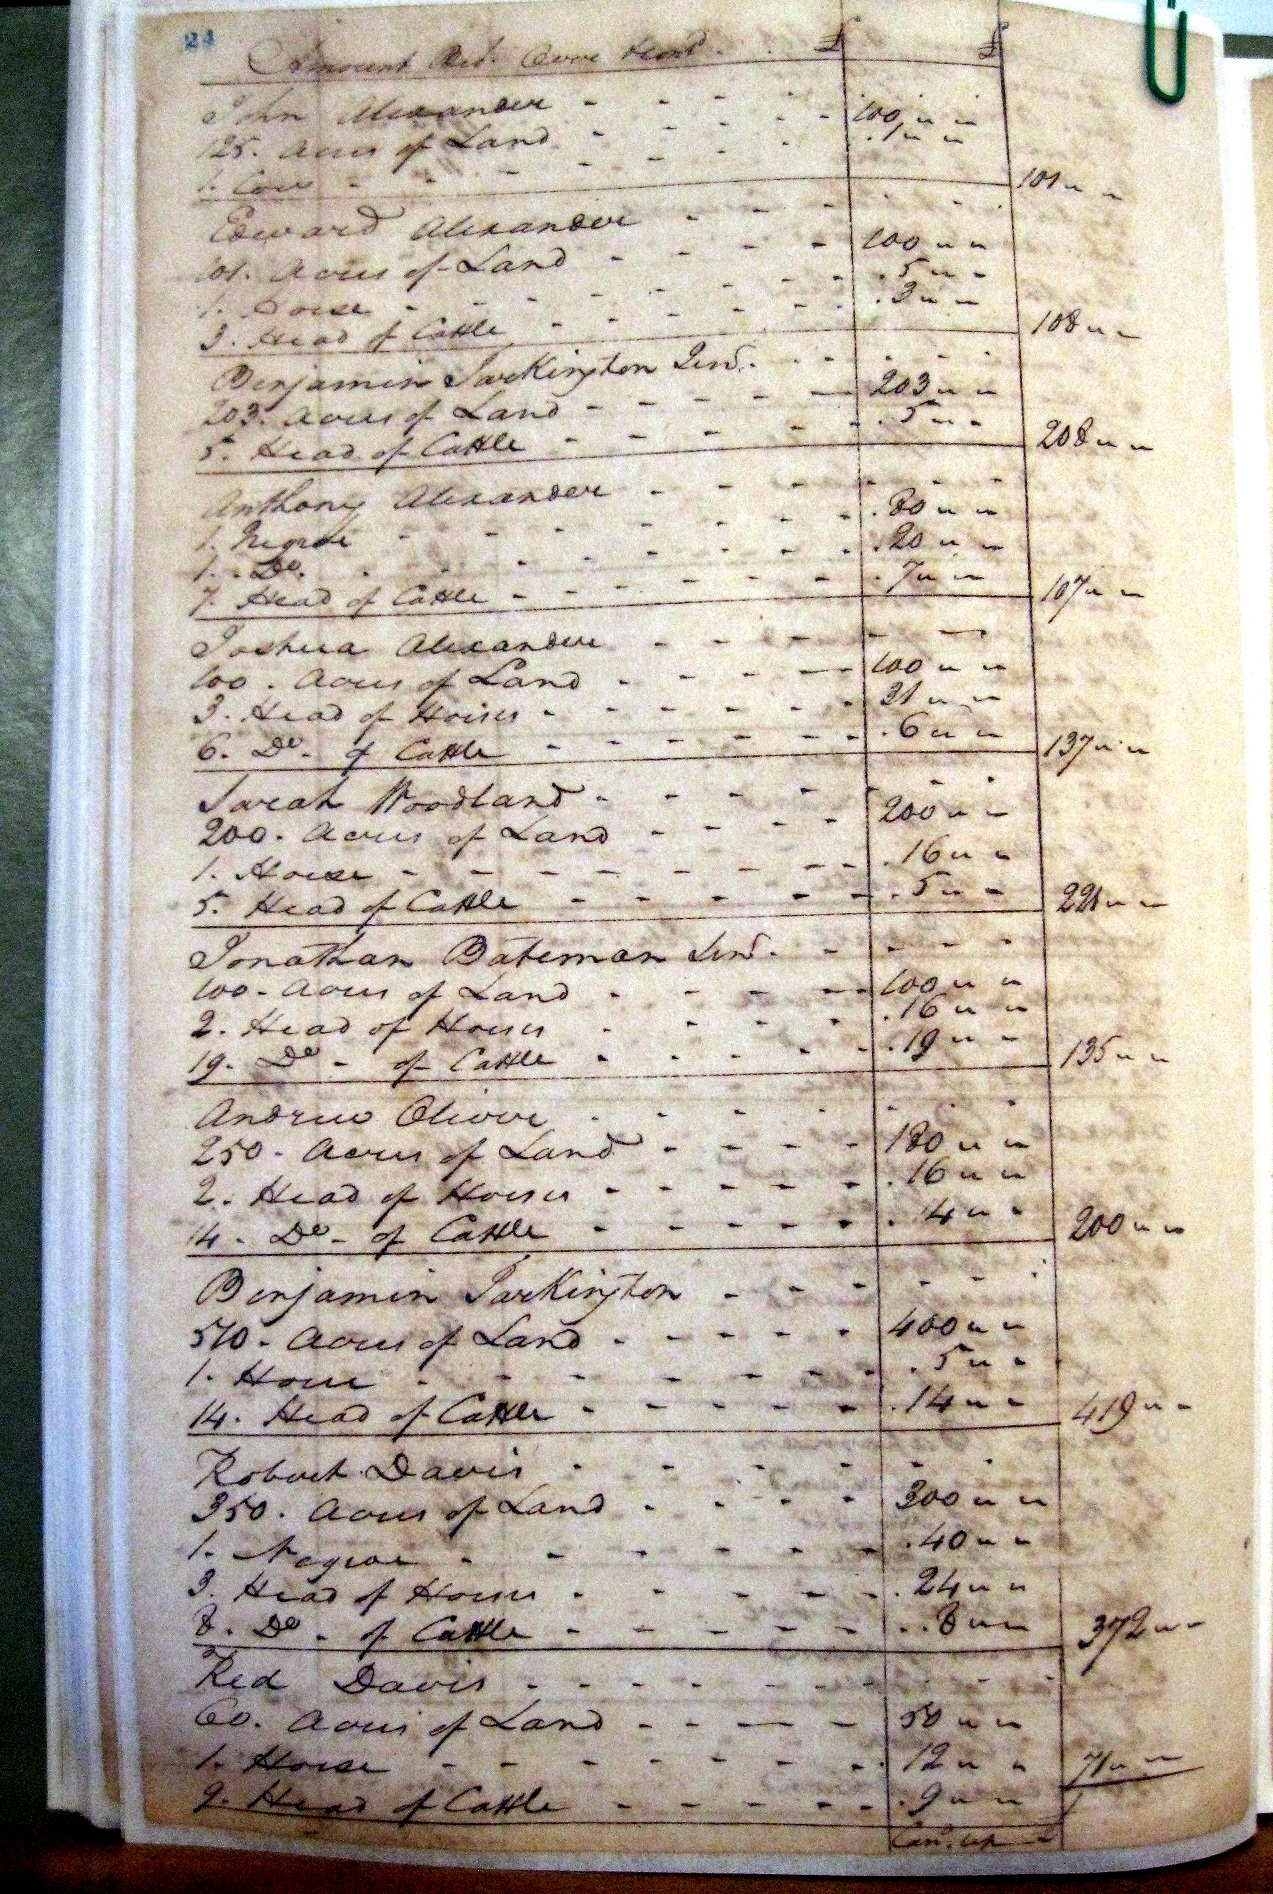 24
Amount Bt. Over . . £ £
John Alexander - - - -
125. Acres of Land - - - - 100 " "
1. Cow - - - - . 1 " " 101 " "
Edward Alexander - - - -
101. Acres of Land - - - - 100 " "
1. Horse - - - - . 5 " "
3. Head of Cattle - - - - . 3 " " 108 " "
Benjamin Tarkington Senr. - -
203. Acres of Land - - - - 203 " "
5. Head of Cattle - - - - . 5 " " 208 " "
Anthony Alexander - - - -
1. Negroe - - - - . 80 " "
1. Do. - - - - . 20 " "
7. Head of Cattle - - - - . 7 " " 107 " "
Joshua Alexander - - - -
100. Acres of Land - - - - 100 " "
3. Head of Horses - - - - 31 " "
6. Do. of Cattle - - - - . 6 " " 137 " "
Sarah Woodland - - - -
200. Acres of Land - - - - 200 " "
1. Horse - - - - . 16 " "
5. Head of Cattle - - - - . 5 " " 221 " "
Jonathan Bateman Senr. - -
100. Acres of Land - - - - 100 " "
2. Head of Horses - - - - . 16 " "
19. Do - of Cattle - - - - . 19 " " 135 " "
Andrew Oliver - - - -
250. Acres of Land - - - - 180 " "
2. Head of Horses - - - - . 16 " "
14. Do - of Cattle - - - - . 14 " " 200 " "
Benjamin Tarkington - - - -
570. Acres of Land - - - - 400 " "
1. Horse - - - - . 5 " "
14. Head of Cattle - - - - . 14 " " 419 " "
Robert Davis - - - -
350. Acres of Land - - - - 300 " "
1. Negroe - - - - . 40 " "
3. Head of Horses - - - - . 24 " "
8. Do - of Cattle - - - - . . 8 " " 372 " "
Red Davis - - - -
60. Acres of Land - - - - 50 " "
1. Horse - - - - . 12 " " 71 " "
9. Head of Cattle - - - - . 9 " "
Carr. up £